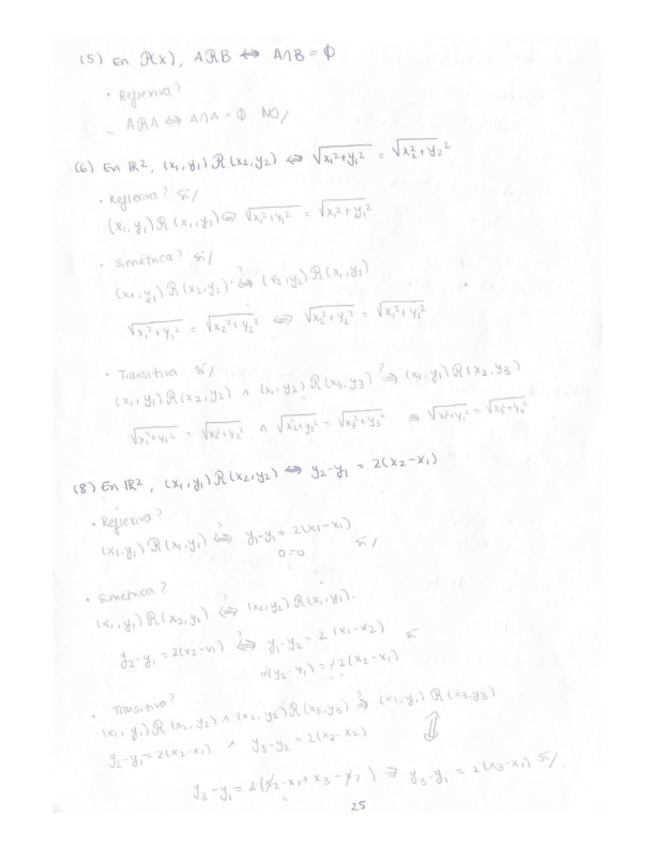 (5) En P(X), A R B ⇔ A∩B = ∅
• Reflexiva?
A R A ⇔ A∩A = ∅ NO/
(6) En ℝ², (x₁,y₁) R (x₂,y₂) ⇔ √(x₁²+y₁²) = √(x₂²+y₂²)
• Reflexiva? sí/
(x₁,y₁) R (x₁,y₁) ⇔ √(x₁²+y₁²) = √(x₁²+y₁²)
• Simétrica? sí/
(x₁,y₁) R (x₂,y₂) ⇔? (x₂,y₂) R (x₁,y₁)
√(x₁²+y₁²) = √(x₂²+y₂²) ⇔ √(x₂²+y₂²) = √(x₁²+y₁²)
• Transitiva sí/
(x₁,y₁) R (x₂,y₂) ∧ (x₂,y₂) R (x₃,y₃) ⇒? (x₁,y₁) R (x₃,y₃)
√(x₁²+y₁²) = √(x₂²+y₂²) ∧ √(x₂²+y₂²) = √(x₃²+y₃²) ⇒ √(x₁²+y₁²) = √(x₃²+y₃²)
(8) En ℝ², (x₁,y₁) R (x₂,y₂) ⇔ y₂-y₁ = 2(x₂-x₁)
• Reflexiva?
(x₁,y₁) R (x₁,y₁) ⇔? y₁-y₁ = 2(x₁-x₁)
0=0 sí/
• Simétrica?
(x₁,y₁) R (x₂,y₂) ⇔? (x₂,y₂) R (x₁,y₁).
y₂-y₁ = 2(x₂-x₁) ⇔? y₁-y₂ = 2(x₁-x₂) sí
-(y₂-y₁) = -2(x₂-x₁)
• Transitiva?
(x₁,y₁) R (x₂,y₂) ∧ (x₂,y₂) R (x₃,y₃) ⇒? (x₁,y₁) R (x₃,y₃)
y₂-y₁ = 2(x₂-x₁) ∧ y₃-y₂ = 2(x₃-x₂) ⇕
y₃-y₁ = 2(x₂-x₁+x₃-x₂) ⇒ y₃-y₁ = 2(x₃-x₁) sí/.
25